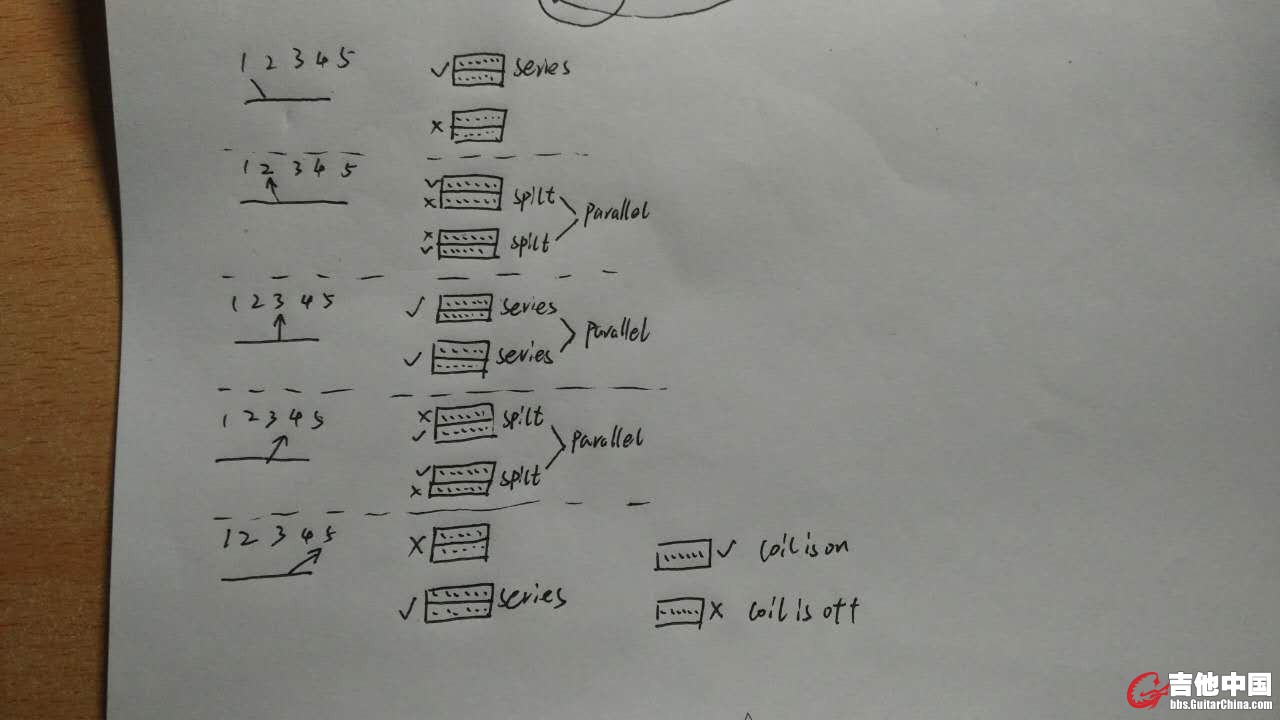 1 2 3 4 5
✓ series
×
1 2 3 4 5
✓
× spilt
parallel
×
✓ spilt
1 2 3 4 5
✓ series
parallel
✓ series
1 2 3 4 5
×
✓ spilt
parallel
✓
× spilt
1 2 3 4 5
×
✓ coil is on
✓ series
× coil is off
吉他中国
bbs.GuitarChina.com